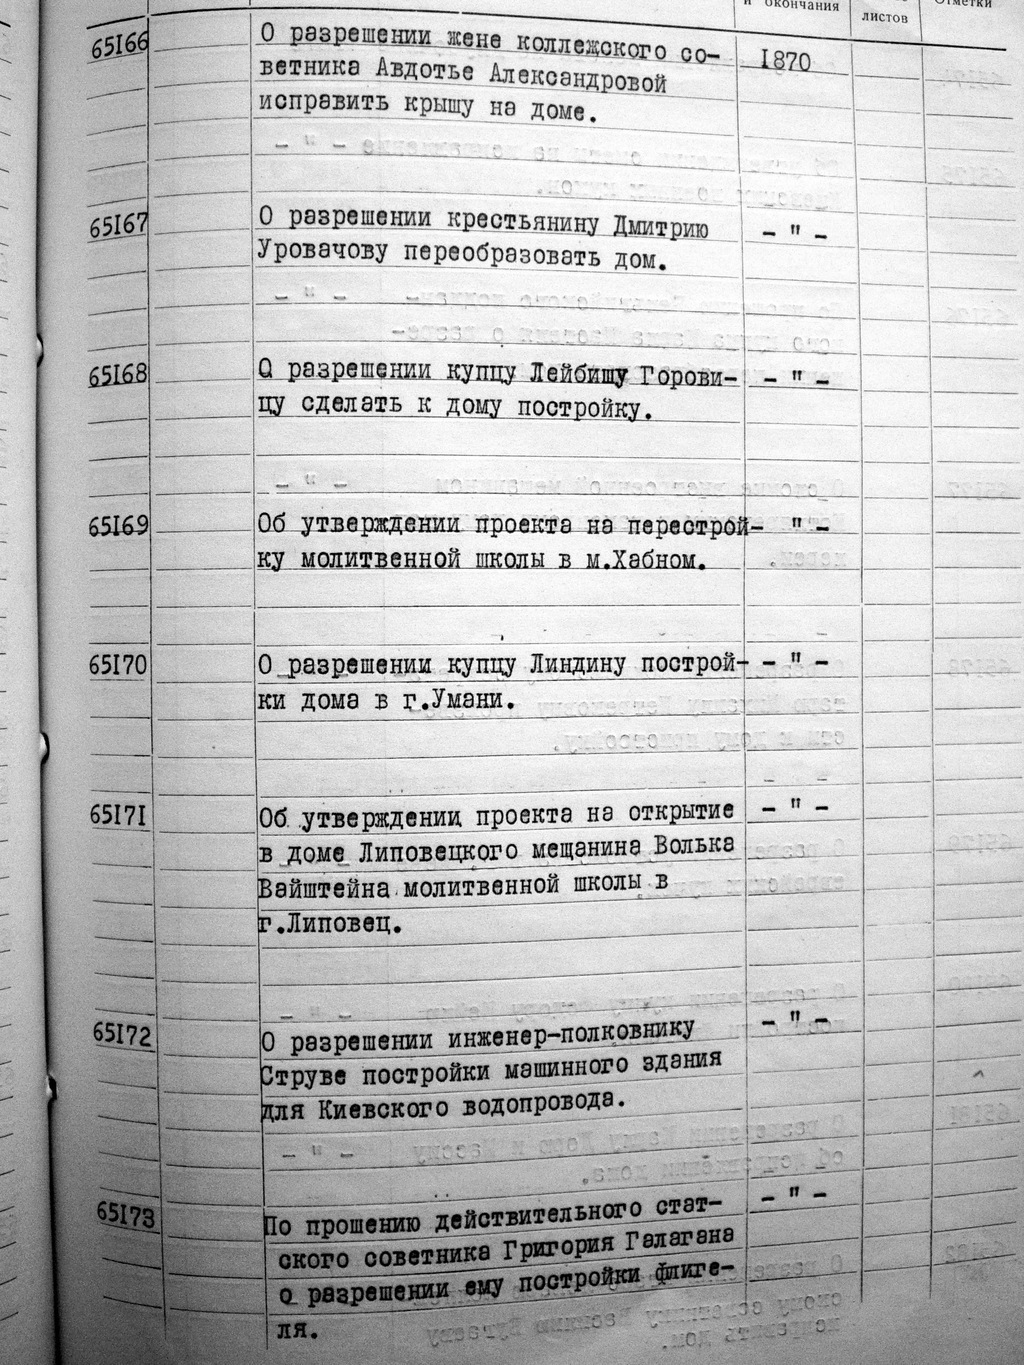 и окончания
листов
Отметки
65I66
О разрешении жене коллежского со-
I870
ветника Авдотье Александровой
исправить крышу на доме.
65I67
О разрешении крестьянину Дмитрию
- " -
Уровачову переобразовать дом.
65I68
О разрешении купцу Лейбишу Горови-
- " -
цу сделать к дому постройку.
65I69
Об утверждении проекта на перестрой-
" -
ку молитвенной школы в м.Хабном.
65I70
О разрешении купцу Линдину построй-
- " -
ки дома в г.Умани.
65I7I
Об утверждении проекта на открытие
- " -
в доме Липовецкого мещанина Волька
Вайштейна молитвенной школы в
г.Липовец.
65I72
О разрешении инженер-полковнику
- " -
Струве постройки машинного здания
для Киевского водопровода.
65I73
По прошению действительного стат-
- " -
ского советника Григория Галагана
о разрешении ему постройки флиге-
ля.